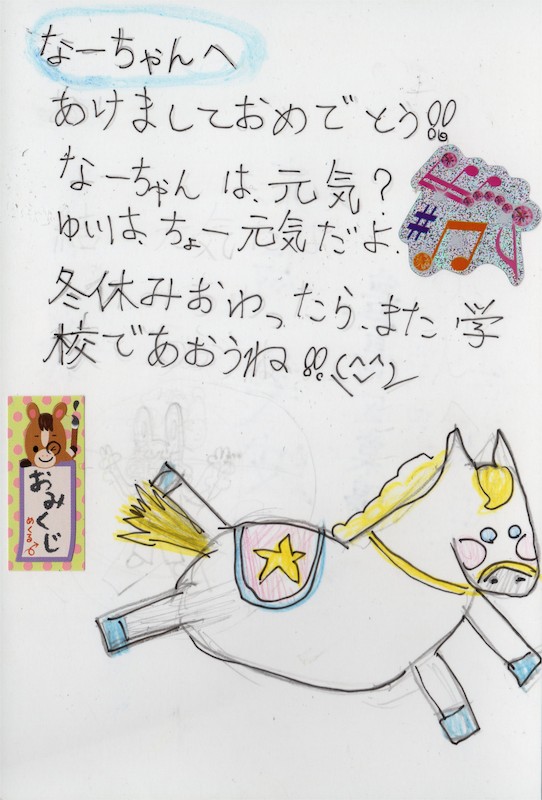 なーちゃんへ
あけましておめでとう!!
なーちゃんは、元気?
ゆりは、ちょー元気だよ、
冬休みおわったら、また学
校であおうね!!(^^)
おみくじ
めくる